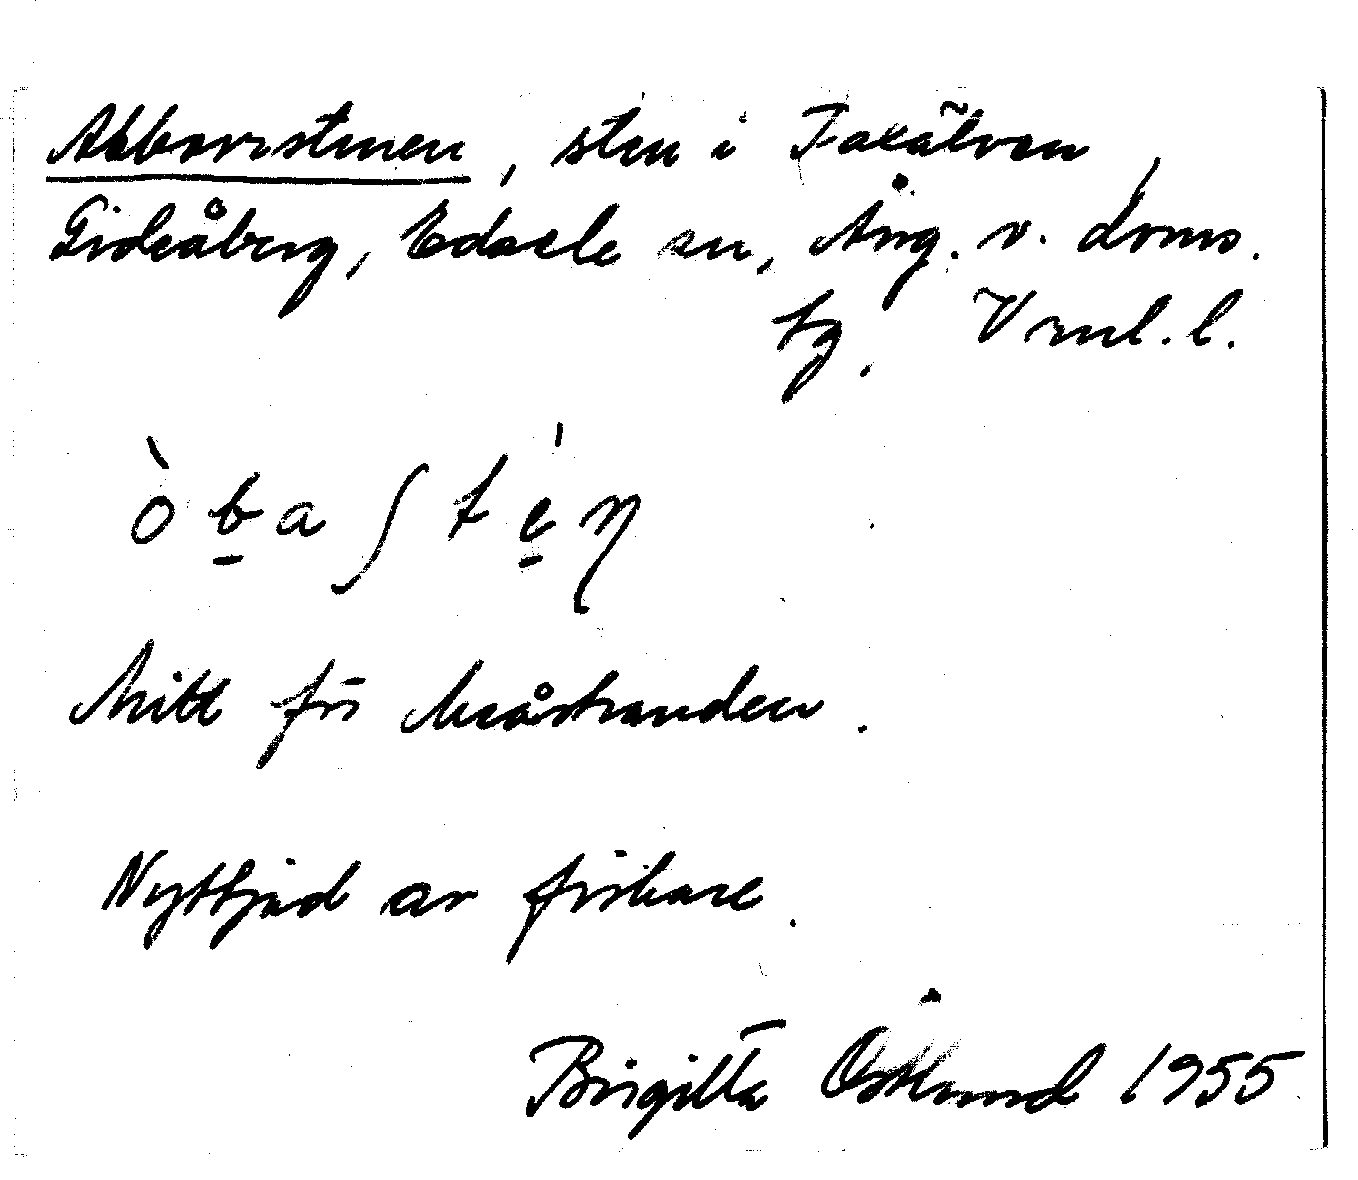 Abborrstenen, sten i Faxälven,
Gideåberg, Edsele sn, Ång. v. doms.
tg. Vrnl. l.
òba∫ten
Mitt för Meåstranden.
Nyttjad av fiskare.
Birgitta Östlund 1955